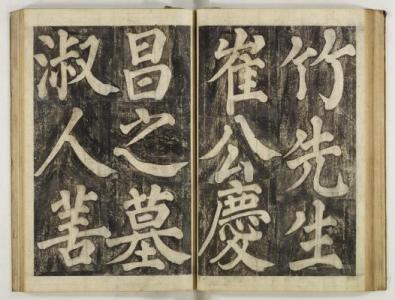 竹先生
崔公慶
昌之墓
淑人善